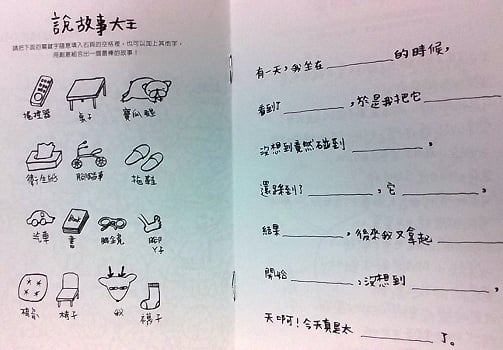 說故事大王
請把下面的關鍵字隨意填入右頁的空格裡，也可以加上其他字，
用創意組合出一個最棒的故事！
遙控器 桌子
衛生紙 腳踏車 拖鞋
汽車 書 眼鏡
椅子 襪子
有一天，我坐在＿＿＿的時候，
看到了＿＿＿，於是我把它＿＿＿
沒想到竟然碰到＿＿＿，
還踩到了＿＿＿，它＿＿＿，
結果＿＿＿，後來我又拿起＿＿＿
開始＿＿＿，沒想到＿＿＿，
天啊！今天真是太＿＿＿了。